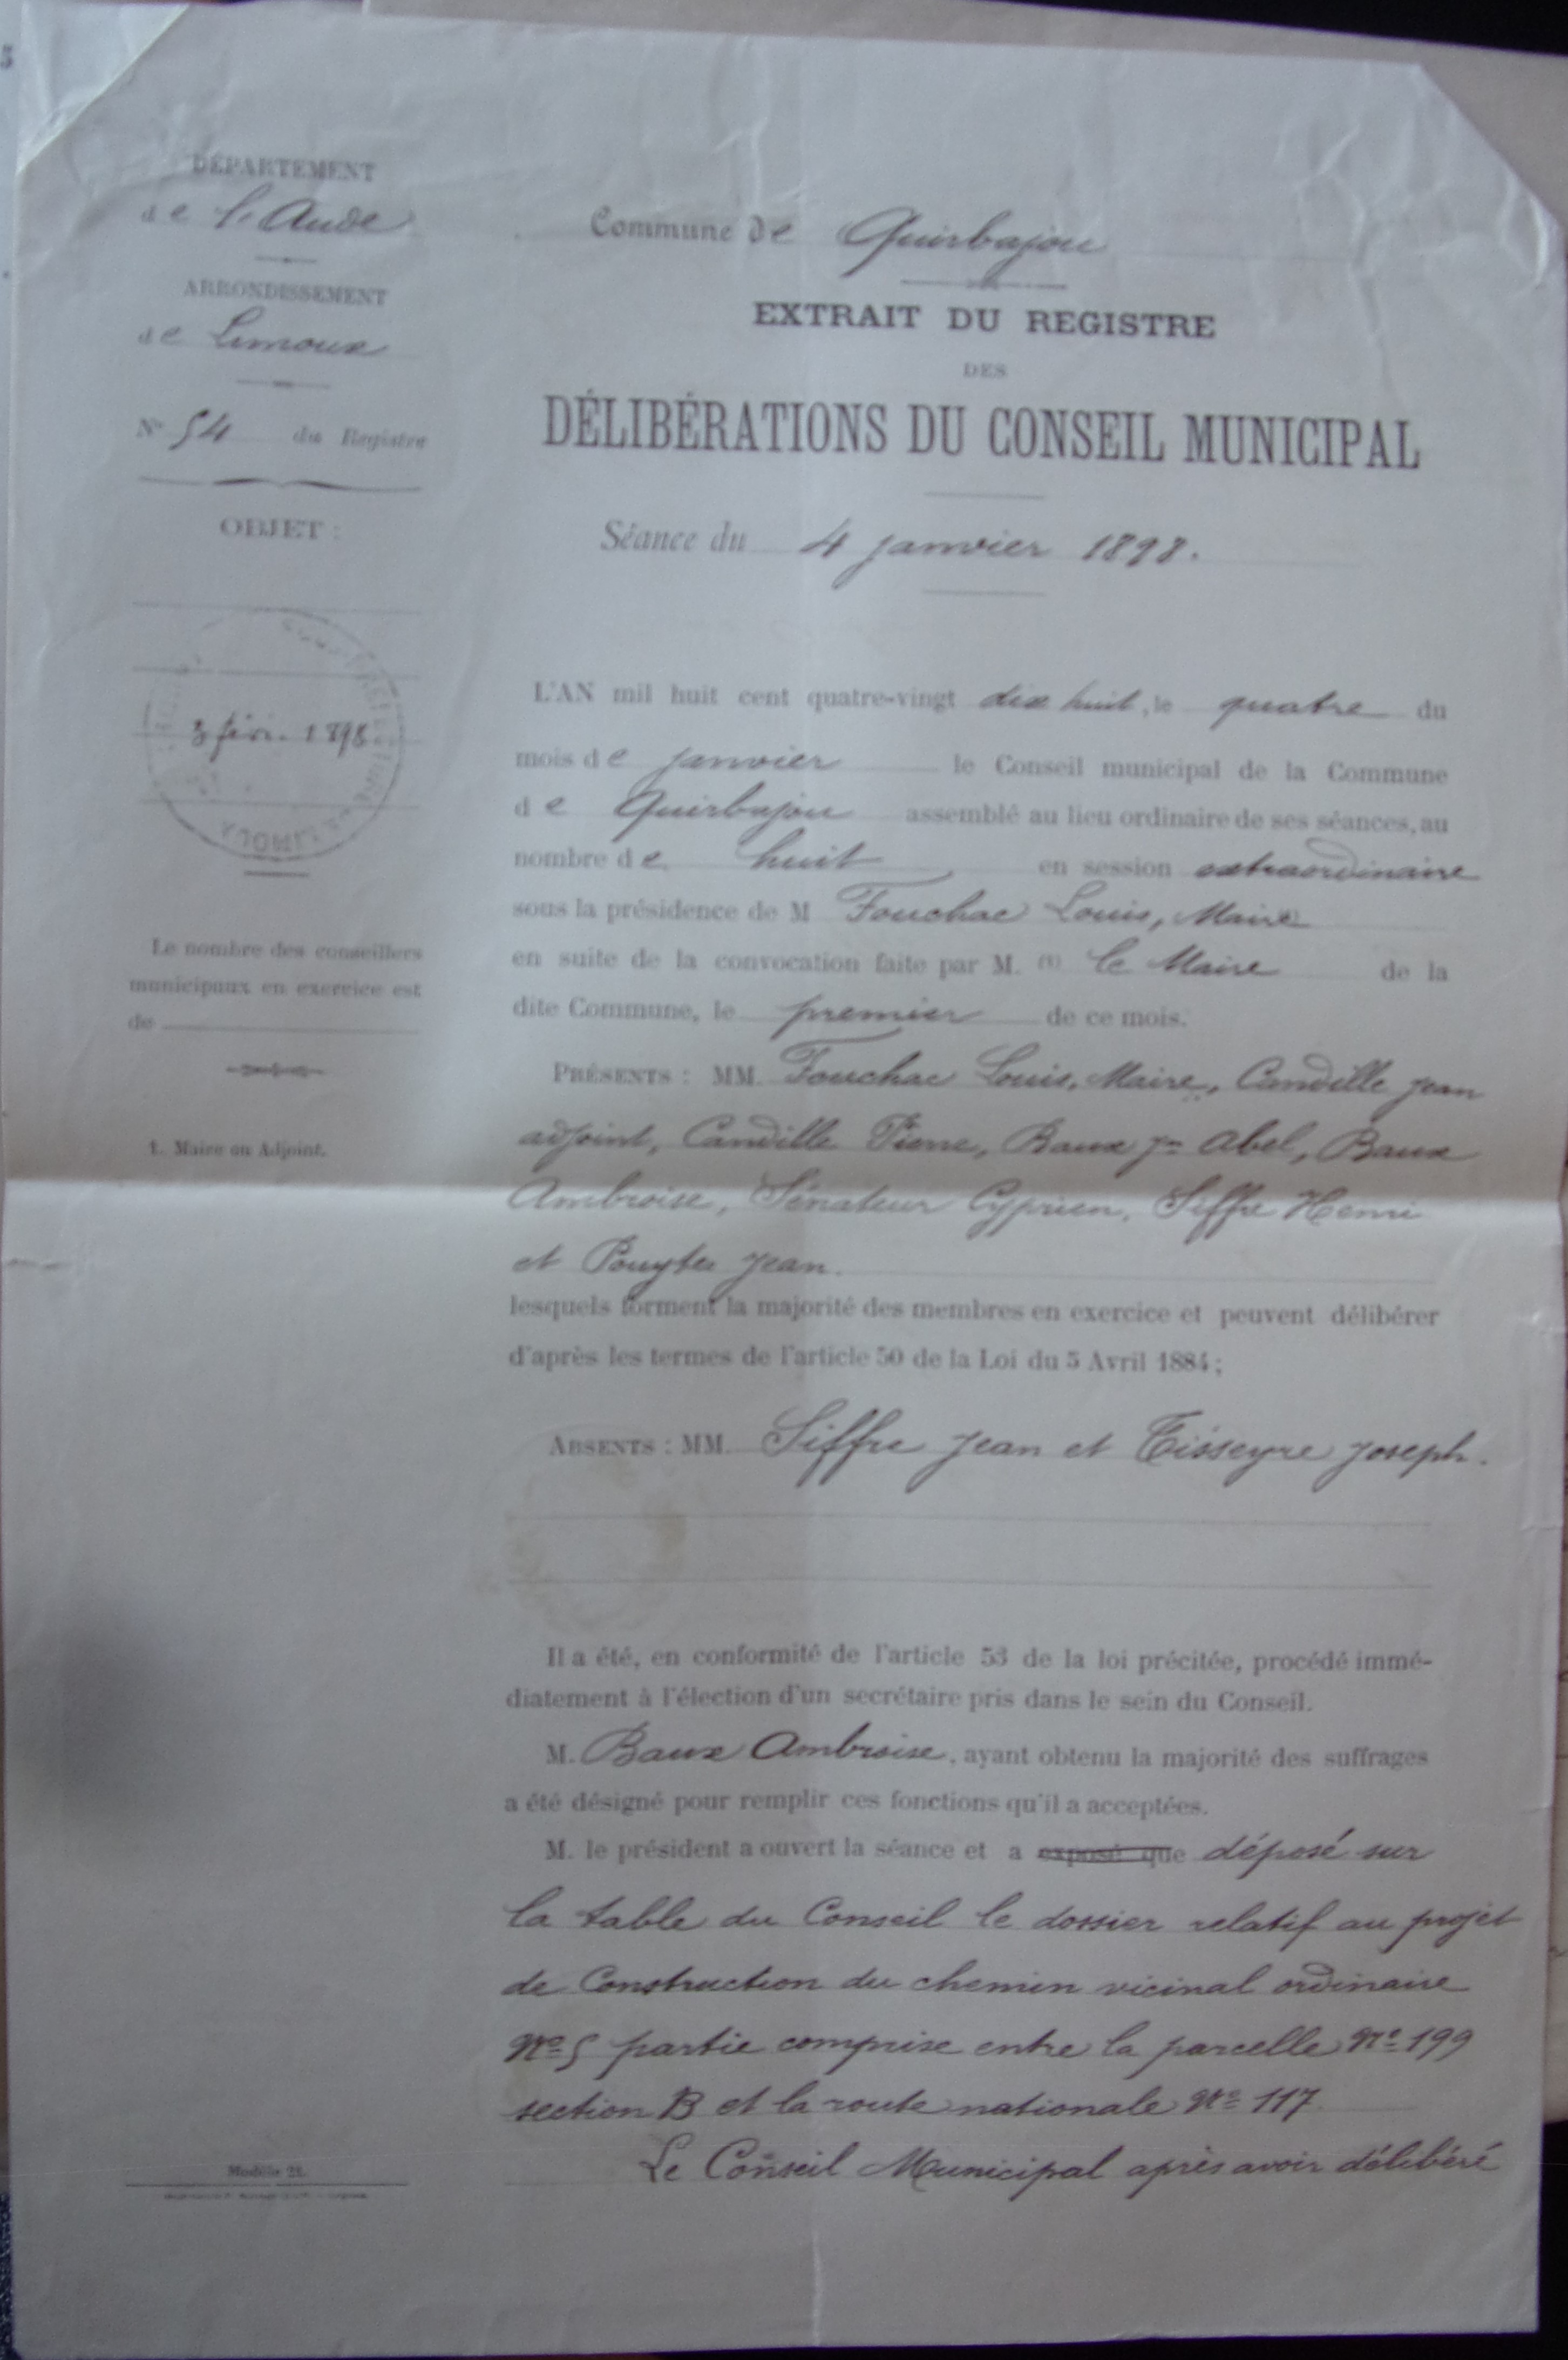 DÉPARTEMENT
de l'Aude
ARRONDISSEMENT
de Limoux
N° 54 du Registre
OBJET :
3 févr. 1898
Le nombre des conseillers
municipaux en exercice est
de
1. Maire ou Adjoint.
Modèle 21.
Commune de Quirbajou
EXTRAIT DU REGISTRE
DES
DÉLIBÉRATIONS DU CONSEIL MUNICIPAL
Séance du 4 janvier 1898.
L'AN mil huit cent quatre-vingt dix huit, le quatre du
mois de janvier le Conseil municipal de la Commune
de Quirbajou assemblé au lieu ordinaire de ses séances, au
nombre de huit en session extraordinaire
sous la présidence de M Fouchac Louis, Maire
en suite de la convocation faite par M. (1) le Maire de la
dite Commune, le premier de ce mois.
PRÉSENTS : MM. Fouchac Louis, Maire, Candille jean
adjoint, Candille Pierre, Baux jn Abel, Baux
Ambroise, Sénateur Cyprien, Siffre Henri
et Pouytes jean.
lesquels forment la majorité des membres en exercice et peuvent délibérer
d'après les termes de l'article 50 de la Loi du 5 Avril 1884 ;
ABSENTS : MM. Siffre jean et Tisseyre joseph.
Il a été, en conformité de l'article 53 de la loi précitée, procédé immé-
diatement à l'élection d'un secrétaire pris dans le sein du Conseil.
M. Baux Ambroise, ayant obtenu la majorité des suffrages
a été désigné pour remplir ces fonctions qu'il a acceptées.
M. le président a ouvert la séance et a exposé que déposé sur
la table du Conseil le dossier relatif au projet
de Construction du chemin vicinal ordinaire
N° 5 partie comprise entre la parcelle N° 199
section B et la route nationale N° 117
Le Conseil Municipal après avoir délibéré